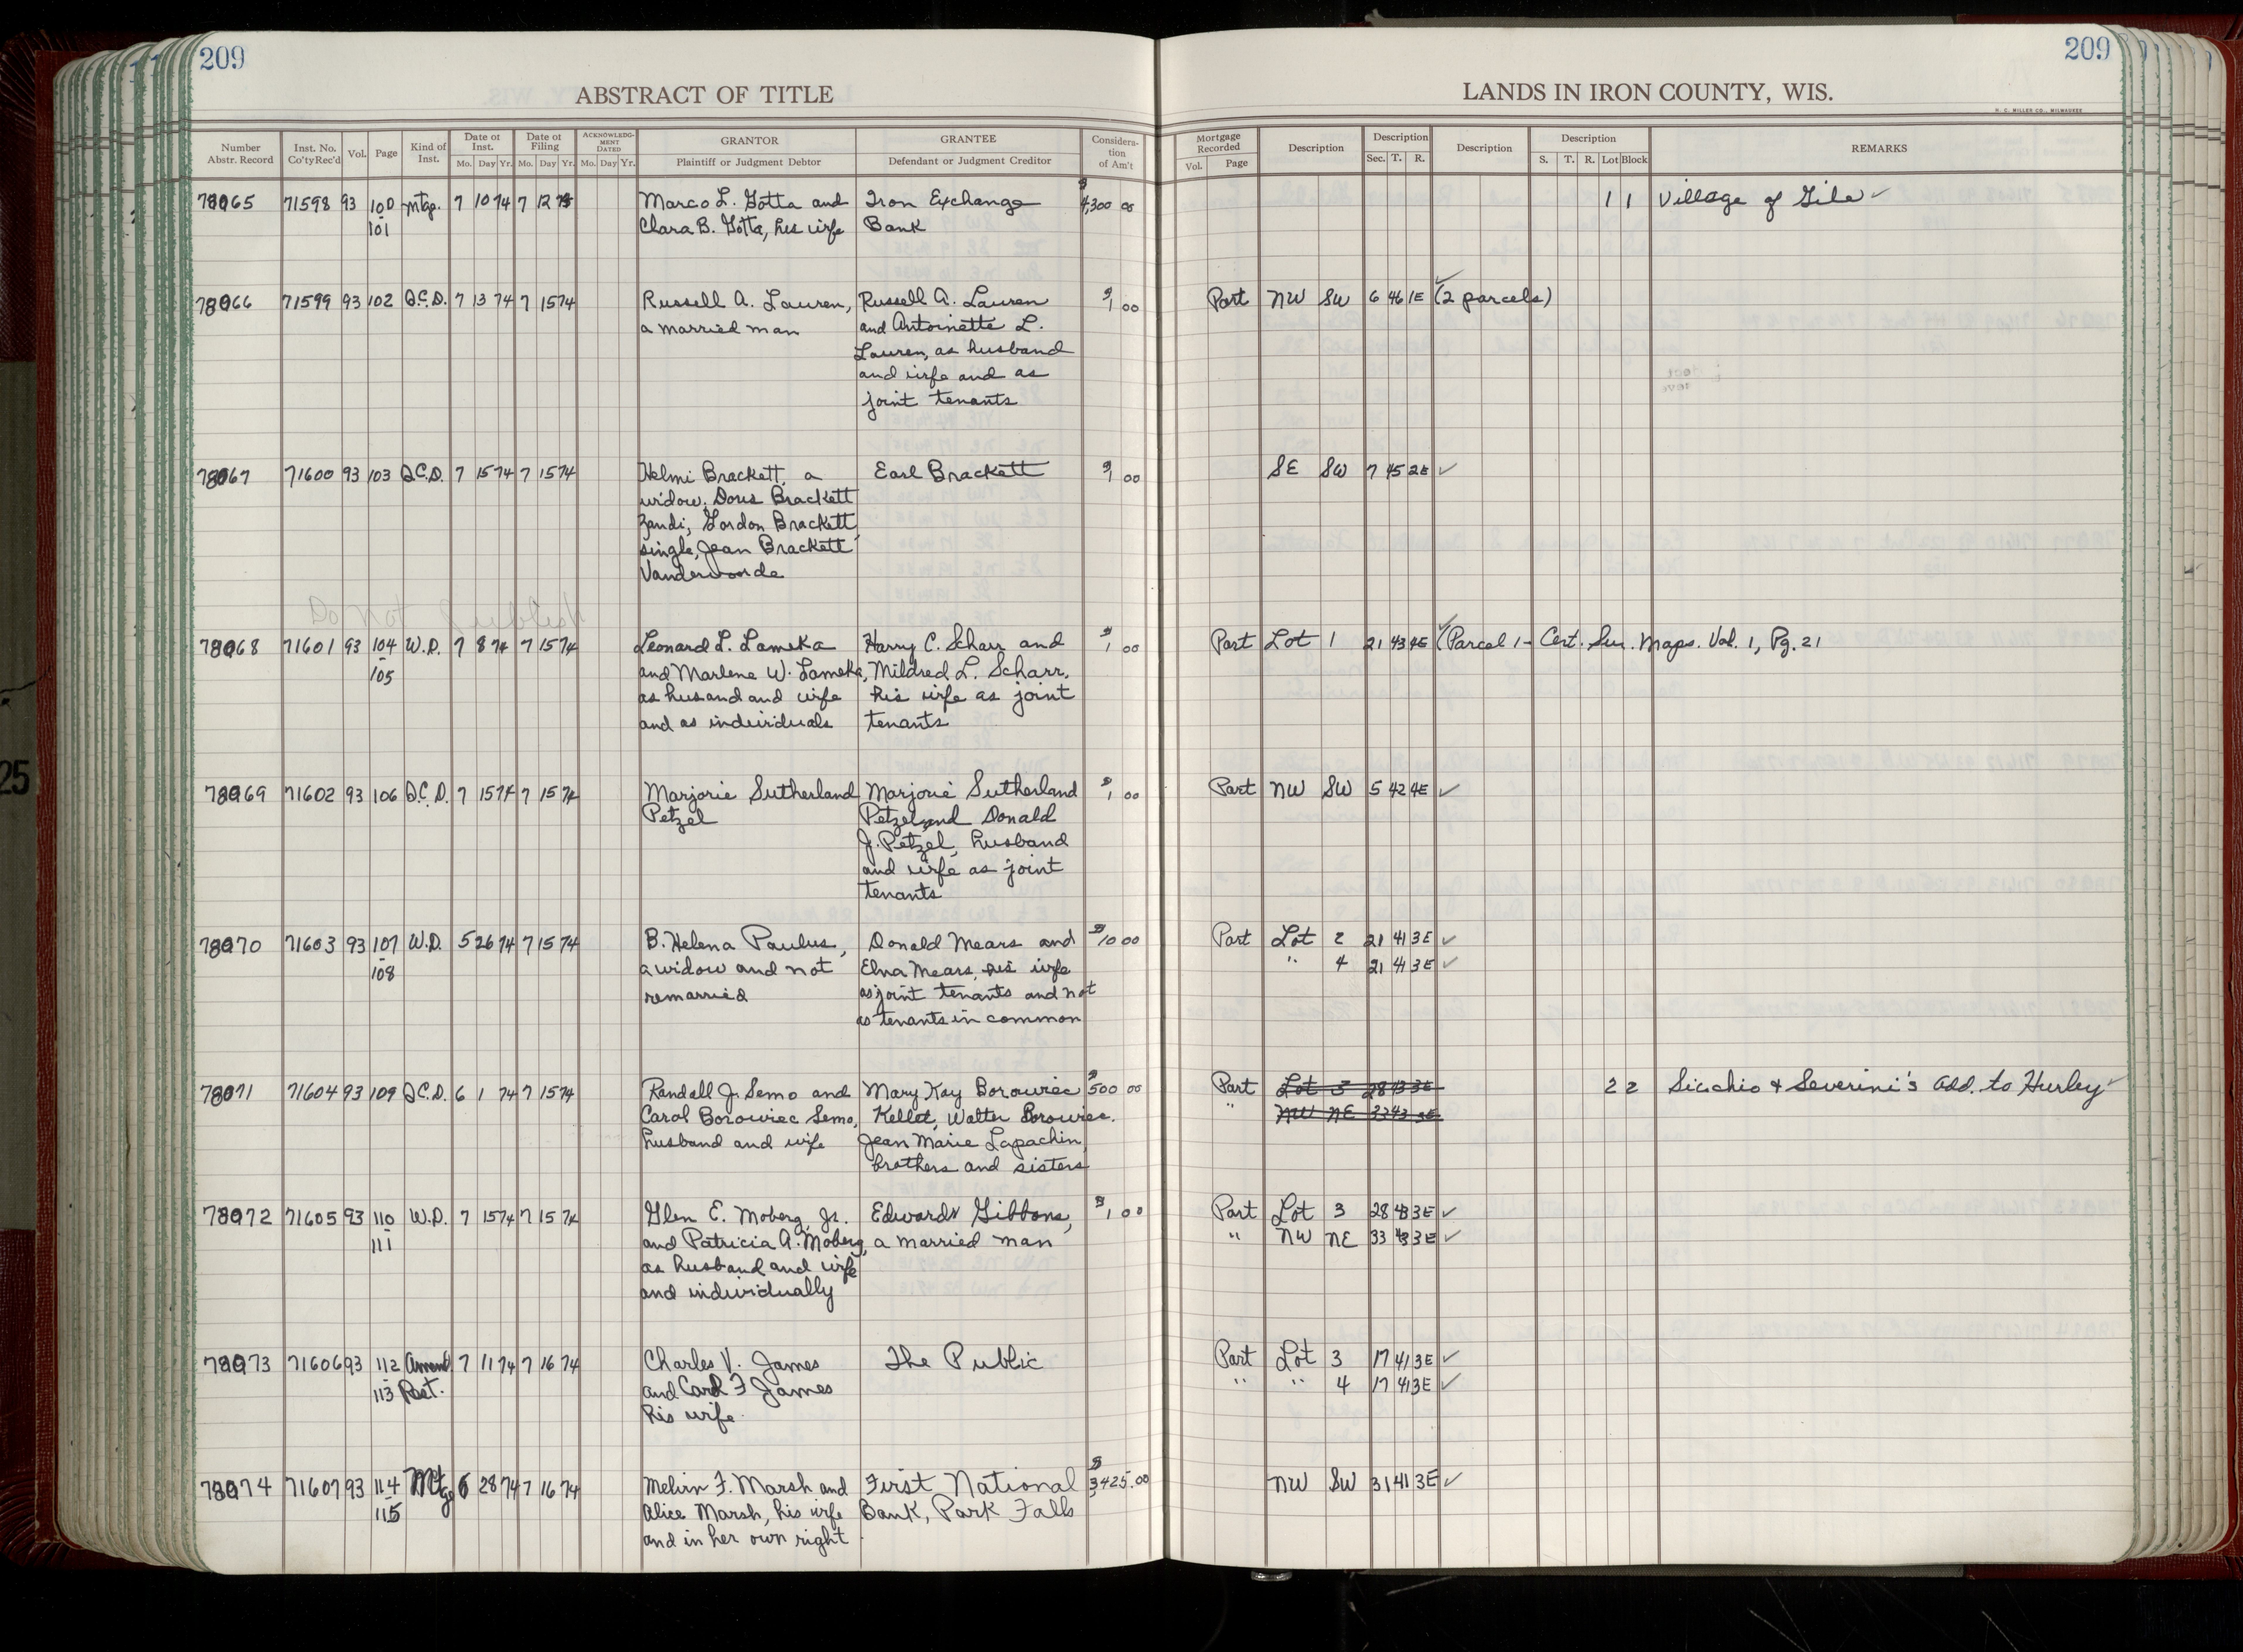 209
ABSTRACT OF TITLE
Number Abstr. Record | Inst. No. Co'ty Rec'd | Vol. | Page | Kind of Inst. | Date of Inst. Mo. Day Yr. | Date of Filing Mo. Day Yr. | ACKNOWLEDGMENT DATED Mo. Day Yr. | GRANTOR Plaintiff or Judgment Debtor | GRANTEE Defendant or Judgment Creditor | Consideration of Am't
78065 71598 93 100 Mtg. 7 10 74 7 12 Marco L. Gotta and Iron Exchange $4,300 00
101 Clara B. Gotta, his wife Bank
78066 71599 93 102 Q.C.D. 7 13 74 7 15 74 Russell A. Lauren, Russell A. Lauren $1 00
a married man and Antoinette L.
Lauren, as husband
and wife and as
joint tenants
78067 71600 93 103 Q.C.D. 7 15 74 7 15 74 Helmi Brackett, a Earl Brackett $1 00
widow, Doris Brackett
Zandi, Gordon Brackett
single, Jean Brackett
Vandervoorde
Do Not Publish
78068 71601 93 104 W.D. 7 8 74 7 15 74 Leonard L. Lameka Harry C. Scharr and $1 00
- 105 and Marlene W. Lameka, Mildred L. Scharr,
as husand and wife his wife as joint
and as individuals tenants
78069 71602 93 106 Q.C.D. 7 15 74 7 15 74 Marjorie Sutherland Marjorie Sutherland $1 00
Petzel Petzel and Donald
J. Petzel, husband
and wife as joint
tenants
78070 71603 93 107 W.D. 5 26 74 7 15 74 B. Helena Paulus, Donald Mears and $10 00
- 108 a widow and not Elna Mears, his wife
remarried as joint tenants and not
as tenants in common
78071 71604 93 109 Q.C.D. 6 1 74 7 15 74 Randall J. Semo and Mary Kay Borowiec $500 00
Carol Borowiec Semo, Kellet, Walter Borowiec.
husband and wife Jean Marie Lapachin,
brothers and sisters
78072 71605 93 110 W.D. 7 15 74 7 15 74 Glen E. Moberg, Jr. Edward Gibbons, $1 00
111 and Patricia A. Moberg, a married man
as husband and wife
and individually
78073 71606 93 112 Amend 7 11 74 7 16 74 Charles V. James The Public
113 Rest. and Carol F James
his wife.
78074 71607 93 114 Mtge 6 28 74 7 16 74 Melvin F. Marsh and First National $3,425.00
115 Alice Marsh, his wife Bank, Park Falls
and in her own right
209
LANDS IN IRON COUNTY, WIS.
H. C. MILLER CO., MILWAUKEE
Mortgage Recorded Vol. Page | Description | Description Sec. T. R. | Description | Description S. T. R. Lot Block | REMARKS
1 1 Village of Gile ✓
Part NW SW 6 46 1E ✓ (2 parcels)
SE SW 7 45 2E ✓
Part Lot 1 21 43 4E ✓ (Parcel 1- Cert. Sur. Maps. Vol. 1, Pg. 21
Part NW SW 5 42 4E ✓
Part Lot 2 21 41 3E ✓
" 4 21 41 3E ✓
Part Lot 3 28 43 3E 2 2 Sicchio & Severini's Add. to Hurley ✓
" NW NE 33 43 3E
Part Lot 3 28 43 3E ✓
" NW NE 33 43 3E ✓
Part Lot 3 17 41 3E ✓
" " 4 17 41 3E ✓
NW SW 31 41 3E ✓
25